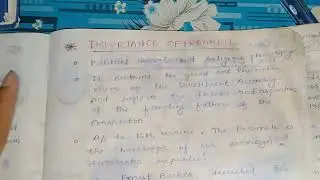 IMPORTANCE OF PREAMBLE
Political, moral and religious philosophy
It contains the grand and the noble
vision of the constituent Assembly
and reflect the dreams and aspirations
of the founding fathers of the
Constitution
A/c to KM Munshi, The Preamble is
the horoscope of our sovereign
democratic republic
Ernest Barker